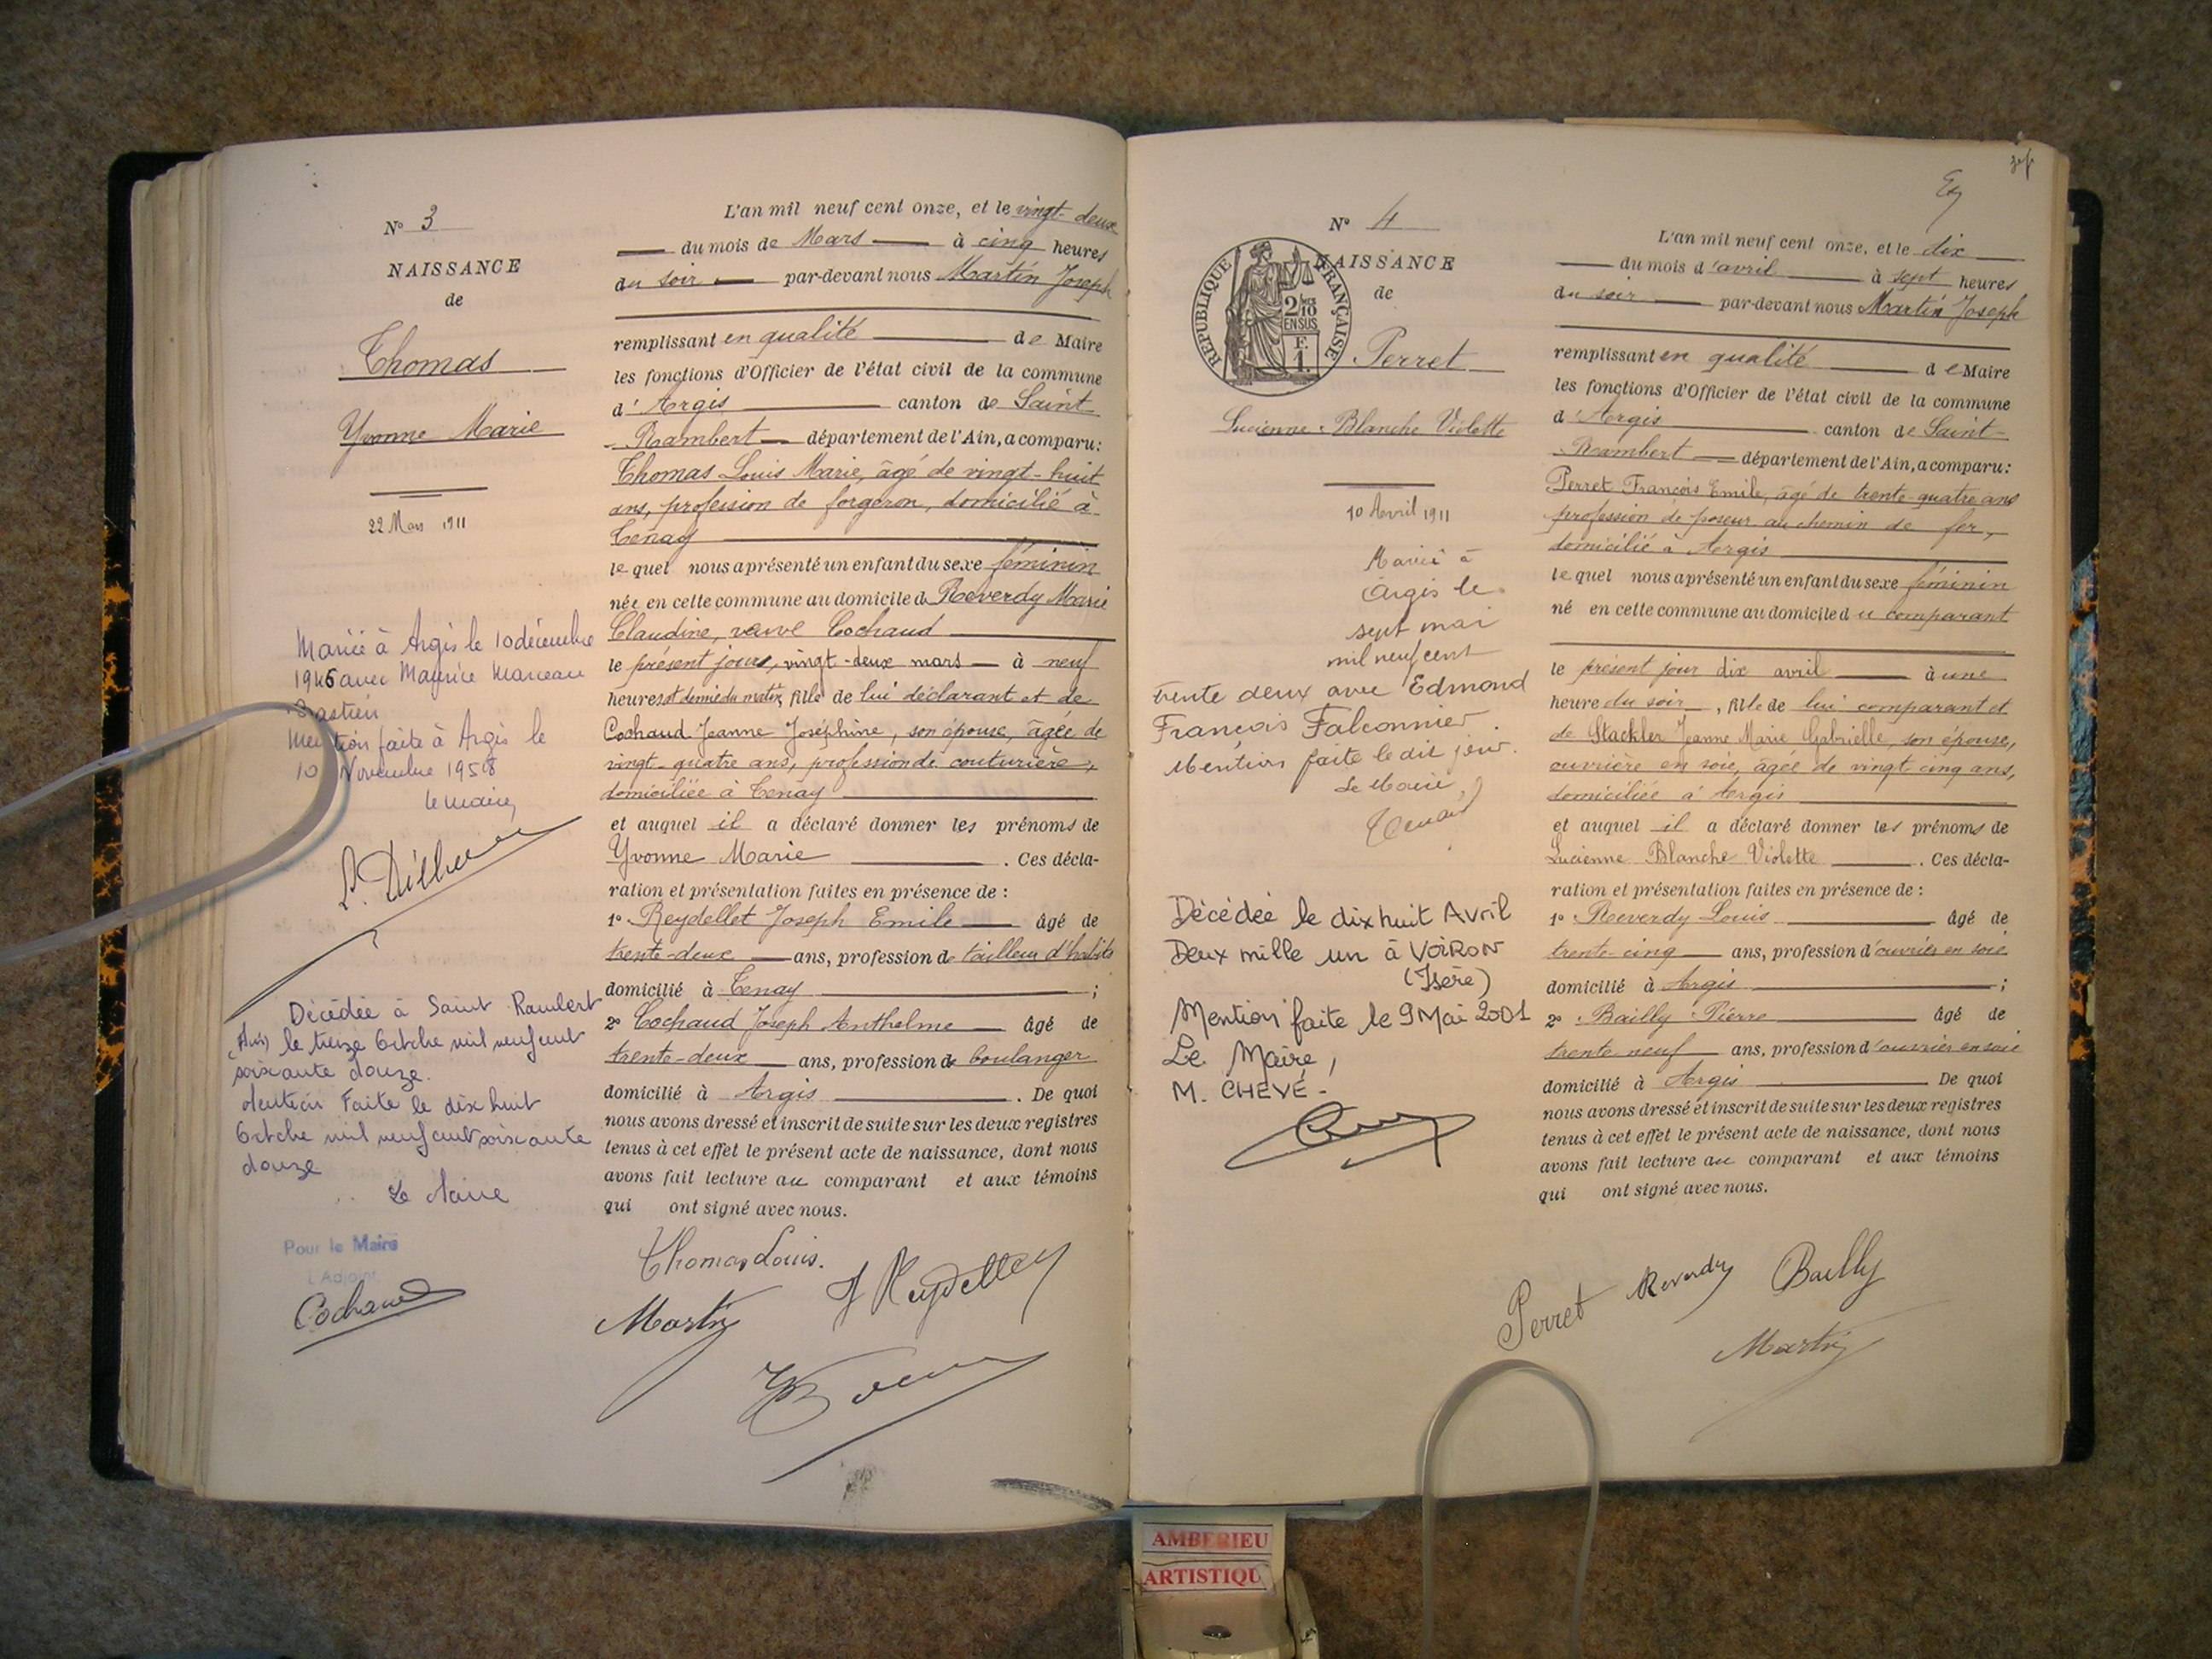 N° 3
NAISSANCE
de
Thomas
Yvonne Marie
22 Mars 1911
Mariée à Argis le 10 décembre
1946 avec Maurice Marceau
Bastien
Mention faite à Argis le
10 Novembre 1958
le maire,
Décédée à Saint Rambert
(Ain) le treize Octobre mil neuf cent
soixante douze.
Mention Faite le dix huit
Octobre mil neuf cent soixante
douze
Le Maire
Pour le Maire
L'Adjoint
Cochaud
L'an mil neuf cent onze, et le vingt-deux
du mois de Mars à cinq heures
du soir par-devant nous Martin Joseph
remplissant en qualité de Maire
les fonctions d'Officier de l'état civil de la commune
d'Argis canton de Saint-
Rambert département de l'Ain, a comparu:
Thomas Louis Marie, âgé de vingt-huit
ans, profession de forgeron, domicilié à
Tenay
lequel nous a présenté un enfant du sexe féminin
née en cette commune au domicile de Reverdy Marie
Claudine, veuve Cochaud
le présent jour, vingt-deux mars à neuf
heures et demie du matin, fille de lui déclarant et de
Cochaud Jeanne Joséphine, son épouse, âgée de
vingt-quatre ans, profession de couturière,
domiciliée à Tenay
et auquel il a déclaré donner les prénoms de
Yvonne Marie . Ces décla-
ration et présentation faites en présence de :
1° Reydellet Joseph Emile âgé de
trente-deux ans, profession de tailleur d'habits
domicilié à Tenay ;
2° Cochaud Joseph Anthelme âgé de
trente-deux ans, profession de boulanger
domicilié à Argis . De quoi
nous avons dressé et inscrit de suite sur les deux registres
tenus à cet effet le présent acte de naissance, dont nous
avons fait lecture au comparant et aux témoins
qui ont signé avec nous.
Thomas Louis.
J Reydellet
Martin
N° 4
NAISSANCE
de
RÉPUBLIQUE FRANÇAISE
2/10
EN SUS
F.
1.
Perret
Lucienne Blanche Violette
10 Avril 1911
Mariée à
Argis le
sept mai
mil neuf cent
trente deux avec Edmond
François Falconnier.
Mention faite le dit jour.
Le Maire,
Décédée le dix huit Avril
Deux mille un à VOIRON
(Isère)
Mention faite le 9 Mai 2001
Le Maire,
M. CHEVÉ -
L'an mil neuf cent onze, et le dix
du mois d'avril à sept heures
du soir par-devant nous Martin Joseph
remplissant en qualité de Maire
les fonctions d'Officier de l'état civil de la commune
d'Argis canton de Saint-
Rambert département de l'Ain, a comparu:
Perret François Emile, âgé de trente-quatre ans
profession de poseur au chemin de fer,
domicilié à Argis
lequel nous a présenté un enfant du sexe féminin
né en cette commune au domicile du comparant
le présent jour dix avril à une
heure du soir, fille de lui comparant et
de Stackler Jeanne Marie Gabrielle, son épouse,
ouvrière en soie, âgée de vingt-cinq ans,
domiciliée à Argis
et auquel il a déclaré donner les prénoms de
Lucienne Blanche Violette . Ces décla-
ration et présentation faites en présence de :
1° Reverdy Louis âgé de
trente-cinq ans, profession d'ouvrier en soie
domicilié à Argis ;
2° Bailly Pierre âgé de
trente-neuf ans, profession d'ouvrier en soie
domicilié à Argis De quoi
nous avons dressé et inscrit de suite sur les deux registres
tenus à cet effet le présent acte de naissance, dont nous
avons fait lecture au comparant et aux témoins
qui ont signé avec nous.
Perret Reverdy Bailly
Martin
AMBERIEU
ARTISTIQU